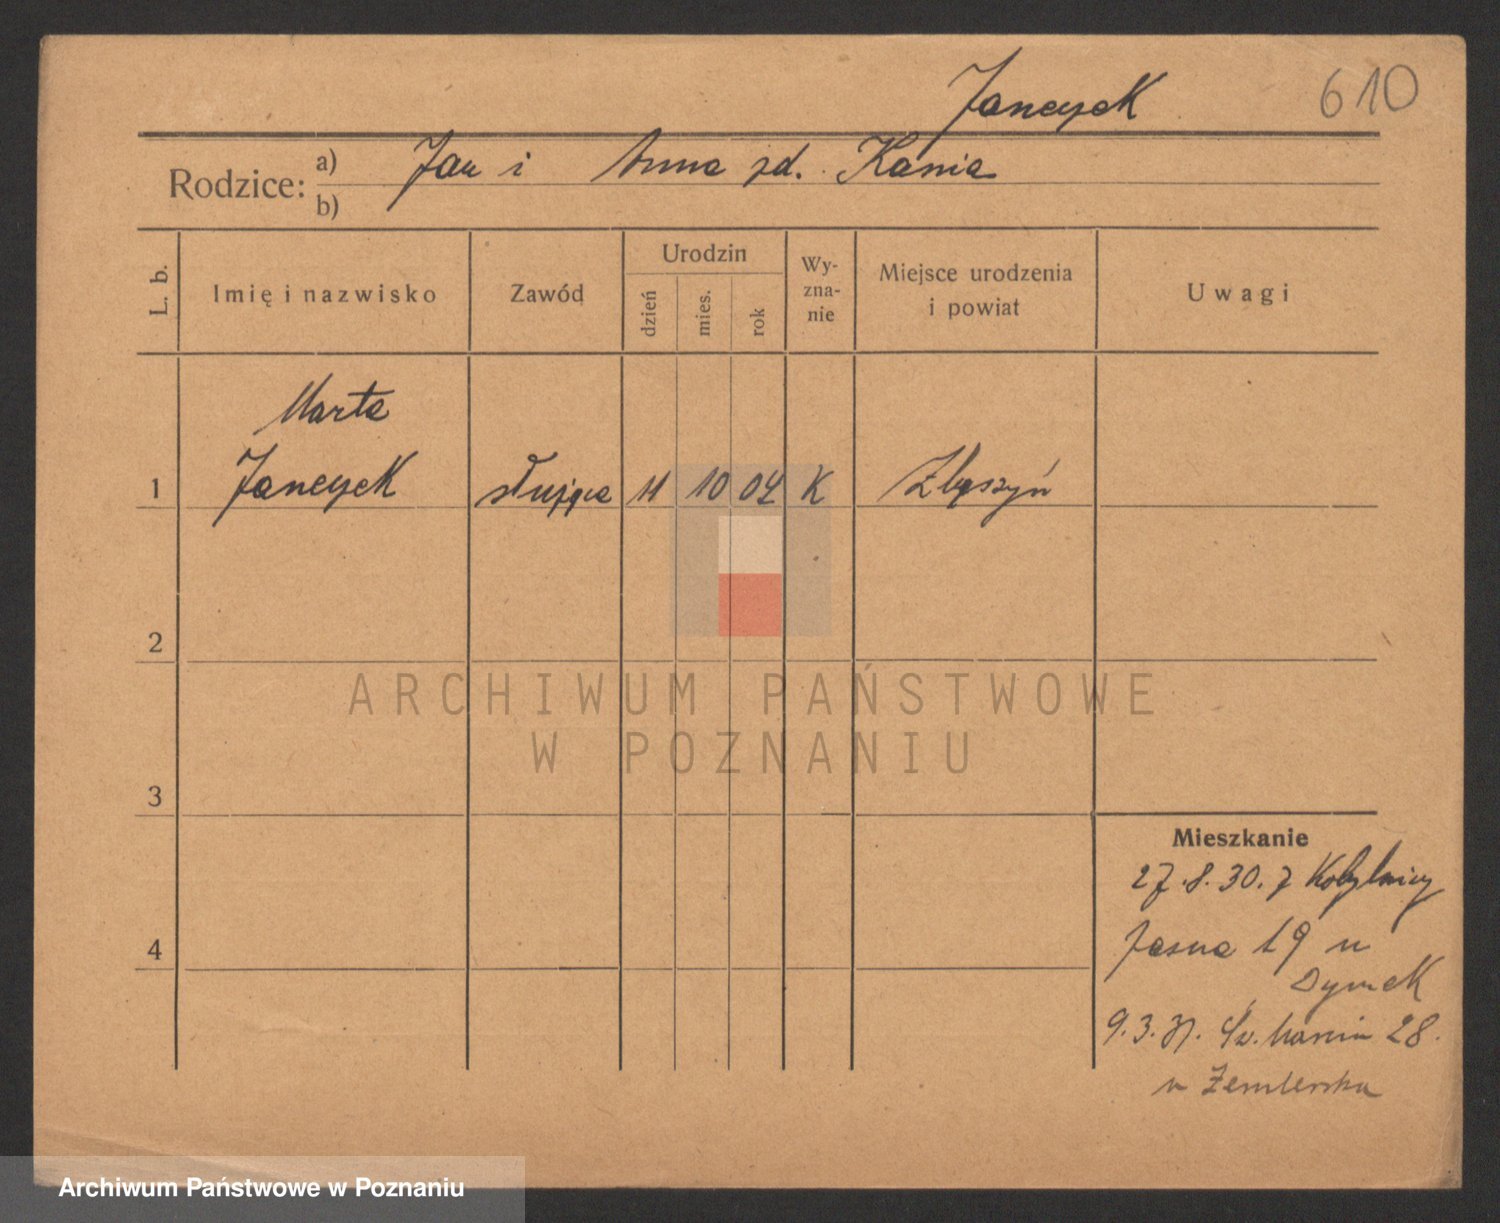 610
Janeyek
Rodzice: a) Jan i Anna zd. Kania
b)
L. b. Imię i nazwisko Zawód Urodzin dzień mies. rok Wy-zna-nie Miejsce urodzenia i powiat Uwagi
Marta
1 Janeyek służąca 11 10 04 K Zbąszyń
2
3
4
Mieszkanie
27.8.30. z Kobylnicy
Jasna 19 u
Dymek
9.3.31. Św. Marcin 28.
u Zemlerska
ARCHIWUM PAŃSTWOWE
W POZNANIU
Archiwum Państwowe w Poznaniu